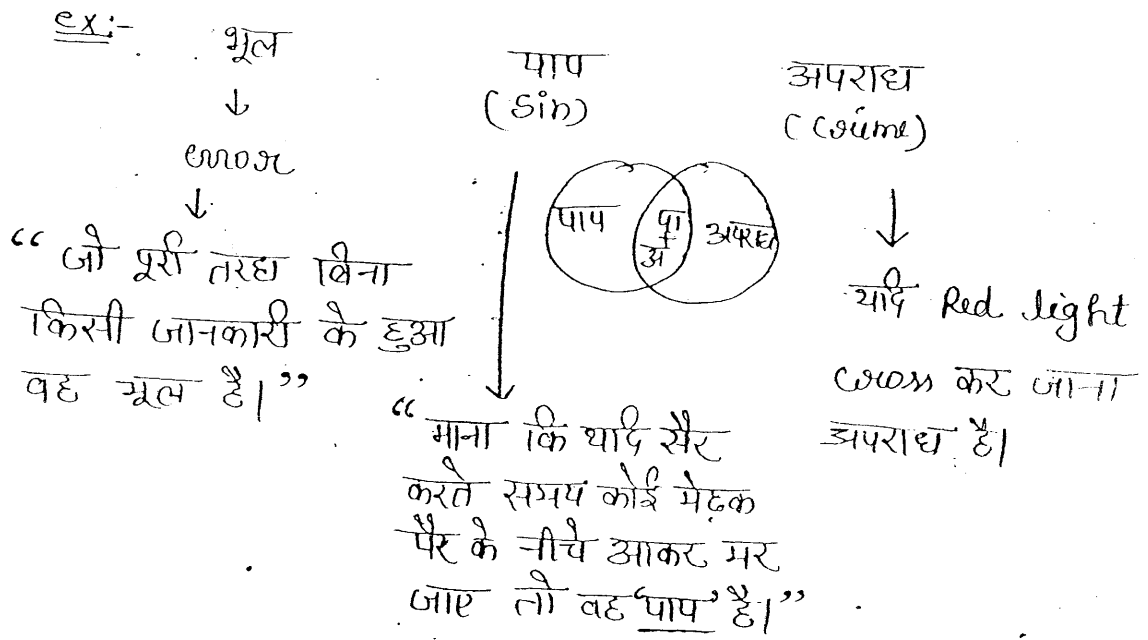 ex:-
भूल
↓
error
↓
“ जो पूरी तरहा बिना
किसी जानकारी के हुआ
वह भूल है।”
पाप
(Sin)
पाप
पा
+
अ
अपराध
“ माना कि यदि सैर
करते समय कोई मेढ़क
पैर के नीचे आकर मर
जाए तो वह ‘पाप’ है।”
अपराध
(Crime)
↓
यदि Red light
cross कर जाना
अपराध है।